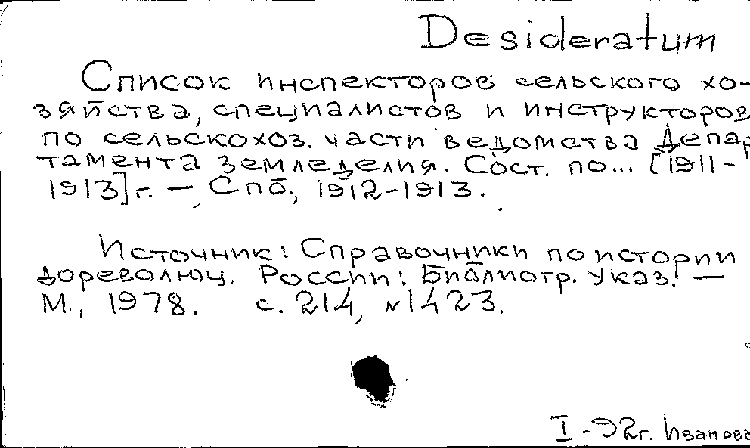 Desideratum
Список инспекторов сельского хо-
зяйства, специалистов и инструкторов
по сельскохоз. части ведомства Депар
тамента земледелия. Сост. по... [1911-
1913]г. — Спб., 1912-1913.
Источник: Справочники по истории
дореволюц. России: Библиогр. указ. —
М., 1978. с. 214, №1423.
I-92г. Иванова